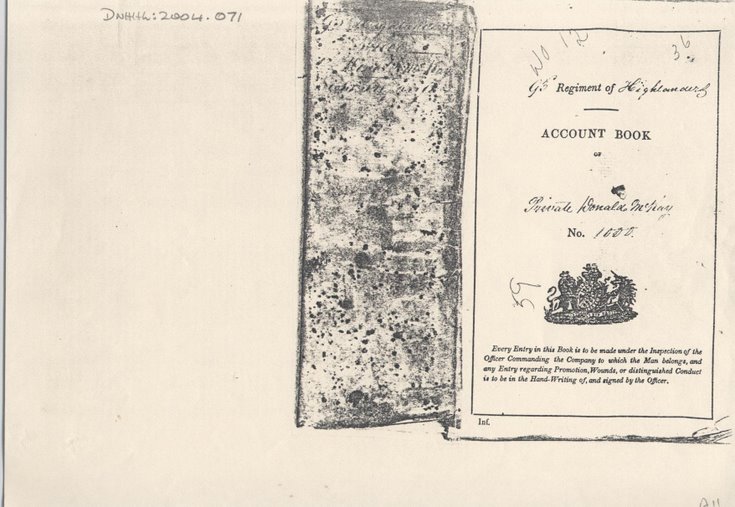 DNHHL: 2004.071
No 12
36
93rd Regiment of Highlanders
ACCOUNT BOOK
OF
Private Donald McKay
No. 1000.
59
Every Entry in this Book is to be made under the Inspection of the
Officer Commanding the Company to which the Man belongs, and
any Entry regarding Promotion, Wounds, or distinguished Conduct
is to be in the Hand-Writing of, and signed by the Officer.
Inf.